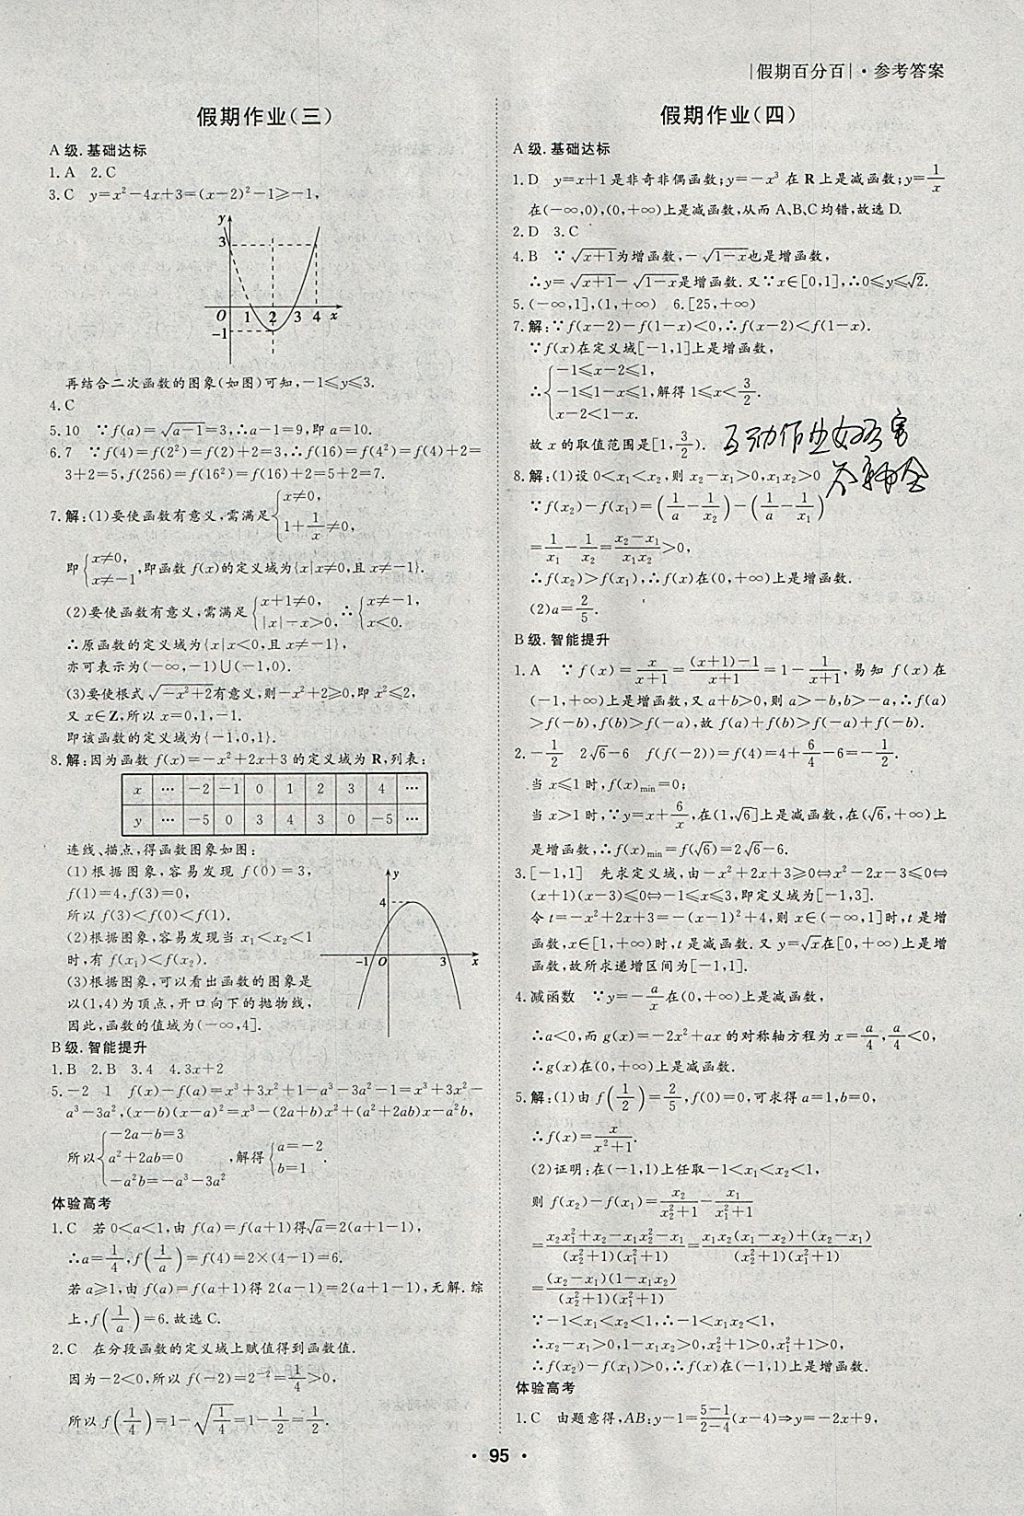 |假期百分百|·参考答案
假期作业(三)
A级.基础达标
1.A 2.C
3.C y=x²-4x+3=(x-2)²-1≥-1,
y
3
O 1 2 3 4 x
-1
再结合二次函数的图象(如图)可知,-1≤y≤3.
4.C
5.10 ∵f(a)=√(a-1)=3,∴a-1=9,即a=10.
6.7 ∵f(4)=f(2²)=f(2)+2=3,∴f(16)=f(4²)=f(4)+2=
3+2=5,f(256)=f(16²)=f(16)+2=5+2=7.
7.解:(1)要使函数有意义,需满足{x≠0, 1+1/x≠0,
即{x≠0, x≠-1,即函数f(x)的定义域为{x|x≠0,且x≠-1}.
(2)要使函数有意义,需满足{x+1≠0, |x|-x>0, ∴{x≠-1, x<0.
∴原函数的定义域为{x|x<0,且x≠-1},
亦可表示为(-∞,-1)∪(-1,0).
(3)要使根式√(-x²+2)有意义,则-x²+2≥0,即x²≤2,
又x∈Z,所以x=0,1,-1.
即该函数的定义域为{-1,0,1}.
8.解:因为函数f(x)=-x²+2x+3的定义域为R,列表:
x … -2 -1 0 1 2 3 4 …
y … -5 0 3 4 3 0 -5 …
连线、描点,得函数图象如图:
(1)根据图象,容易发现f(0)=3,
f(1)=4,f(3)=0,
所以f(3)<f(0)<f(1).
(2)根据图象,容易发现当x₁<x₂<1
时,有f(x₁)<f(x₂).
(3)根据图象,可以看出函数的图象是
以(1,4)为顶点,开口向下的抛物线,
因此,函数的值域为(-∞,4].
y
4
-1 O 3 x
B级.智能提升
1.B 2.B 3.4 4.3x+2
5.-2 1 f(x)-f(a)=x³+3x²+1-a³-3a²-1=x³+3x²-
a³-3a²,(x-b)(x-a)²=x³-(2a+b)x²+(a²+2ab)x-a²b,
所以{-2a-b=3 a²+2ab=0 -a²b=-a³-3a² ,解得{a=-2 b=1.
体验高考
1.C 若0<a<1,由f(a)=f(a+1)得√a=2(a+1-1),
∴a=1/4,f(1/a)=f(4)=2×(4-1)=6.
若a≥1,由f(a)=f(a+1)得2(a-1)=2(a+1-1),无解.综
上,f(1/a)=6.故选C.
2.C 在分段函数的定义域上赋值得到函数值.
因为-2<0,所以f(-2)=2⁻²=1/4>0,
所以f(1/4)=1-√(1/4)=1-1/2=1/2.
假期作业(四)
A级.基础达标
1.D y=x+1是非奇非偶函数;y=-x³在R上是减函数;y=1/x
在(-∞,0),(0,+∞)上是减函数,从而A、B、C均错,故选D.
2.D 3.C
4.B ∵√(x+1)为增函数,-√(1-x)也是增函数,
∴y=√(x+1)-√(1-x)是增函数.又∵x∈[0,1],∴0≤y≤√2.
5.(-∞,1],(1,+∞) 6.[25,+∞)
7.解:∵f(x-2)-f(1-x)<0,∴f(x-2)<f(1-x).
∵f(x)在定义域[-1,1]上是增函数,
∴{-1≤x-2≤1, -1≤1-x≤1, x-2<1-x. 解得1≤x<3/2.
故x的取值范围是[1,3/2).
互动作业好厉害
8.解:(1)设0<x₁<x₂,则x₂-x₁>0,x₁x₂>0
∵f(x₂)-f(x₁)=(1/a-1/x₂)-(1/a-1/x₁)
=1/x₁-1/x₂=(x₂-x₁)/(x₁x₂)>0,
∴f(x₂)>f(x₁),∴f(x)在(0,+∞)上是增函数.
(2)a=2/5.
B级.智能提升
1.A ∵f(x)=x/(x+1)=((x+1)-1)/(x+1)=1-1/(x+1),易知f(x)在
(-1,+∞)上是增函数,又a+b>0,则a>-b,b>-a,∴f(a)
>f(-b),f(b)>f(-a),故f(a)+f(b)>f(-a)+f(-b).
2.-1/2 2√6-6 f(f(-2))=f(4)=4+6/4-6=-1/2.
当x≤1时,f(x)min=0;
当x>1时,∵y=x+6/x,在(1,√6]上是减函数,在(√6,+∞)上
是增函数,∴f(x)min=f(√6)=2√6-6.
3.[-1,1] 先求定义域,由-x²+2x+3≥0⇔x²-2x-3≤0⇔
(x+1)(x-3)≤0⇔-1≤x≤3,即定义域为[-1,3].
令t=-x²+2x+3=-(x-1)²+4,则x∈(-∞,1]时,t是增
函数,x∈[1,+∞)时,t是减函数.又y=√x在[0,+∞)上是增
函数,故所求递增区间为[-1,1].
4.减函数 ∵y=-a/x在(0,+∞)上是减函数,
∴a<0,而g(x)=-2x²+ax的对称轴方程为x=a/4,a/4<0,
∴g(x)在(0,+∞)上是减函数.
5.解:(1)由f(1/2)=2/5,f(0)=0,可求得a=1,b=0,
∴f(x)=x/(x²+1).
(2)证明:在(-1,1)上任取-1<x₁<x₂<1,
则f(x₂)-f(x₁)=x₂/(x₂²+1)-x₁/(x₁²+1)
=(x₂x₁²+x₂-x₁x₂²-x₁)/((x₂²+1)(x₁²+1))=(x₁x₂(x₁-x₂)+(x₂-x₁))/((x₂²+1)(x₁²+1))
=(x₂-x₁)(1-x₁x₂)/((x₂²+1)(x₁²+1))
∵-1<x₁<x₂<1,∴-1<x₁x₂<1,
∴x₂-x₁>0,1-x₁x₂>0,x₂²+1>0,x₁²+1>0,
∴f(x₂)-f(x₁)>0,∴f(x)在(-1,1)上是增函数.
体验高考
1.C 由题意得,AB:y-1=(5-1)/(2-4)(x-4)⇒y=-2x+9,
· 95 ·